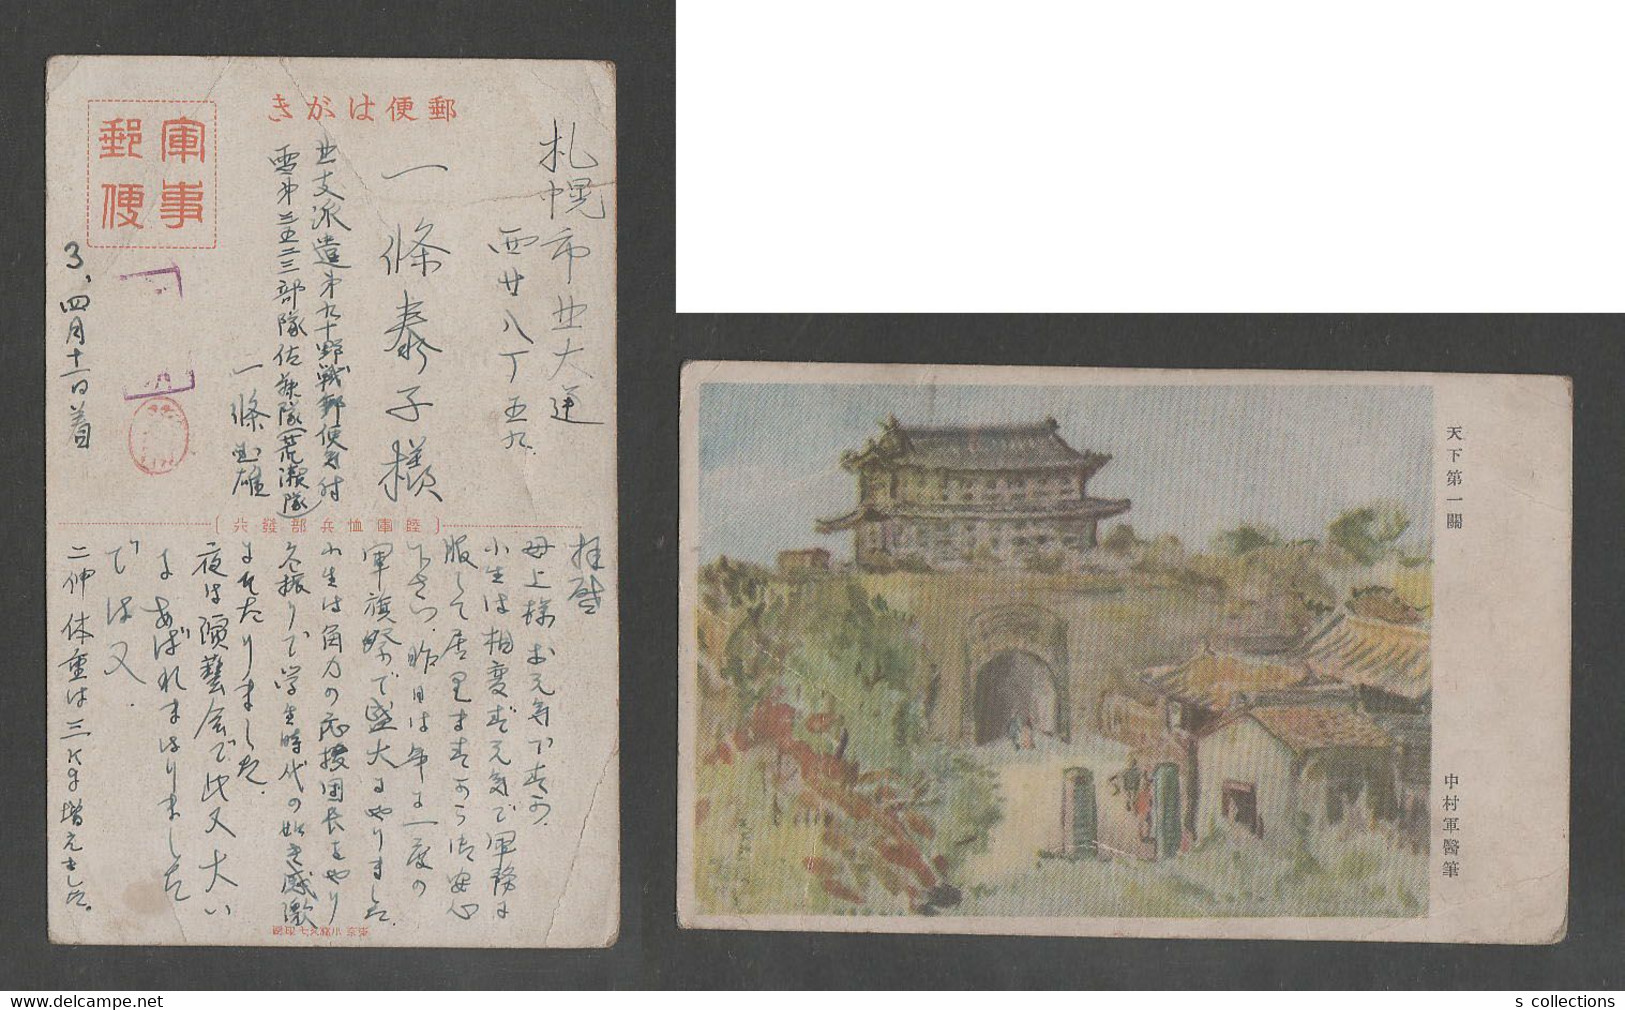 郵便はがき
軍事
郵便
札幌市北大通
西廿八丁五九
一條泰子様
北支派遣第九十野戦郵便局付
雲第三五二三部隊佐藤隊(荒瀬隊)
一條 雄
3、四月十一日着
〔陸軍恤兵部發行〕
拝啓
母上様お元気ですか。
小生は相変ず元気で軍務に
服して居りますから御安心
下さい。昨日は年に一度の
軍旗祭で盛大にやりました。
小生は角力の応援団長をやり
振りで学生時代の如き感激
にひたりました。
夜は演藝会で此又大い
にあばれまはりました
では又
二伸 体重は三K増えました。
東京 小 印刷
天下第一關
中村軍醫筆
s collections